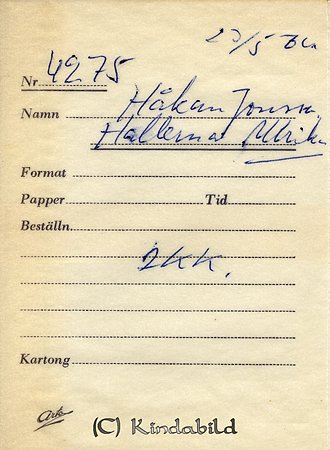 23/5 60
Nr 4975
Namn Håkan Jonsson
Hallerna Ulrika
Format
Papper Tid
Beställn.
2 KK.
Kartong
Ark
(C) Kindabild